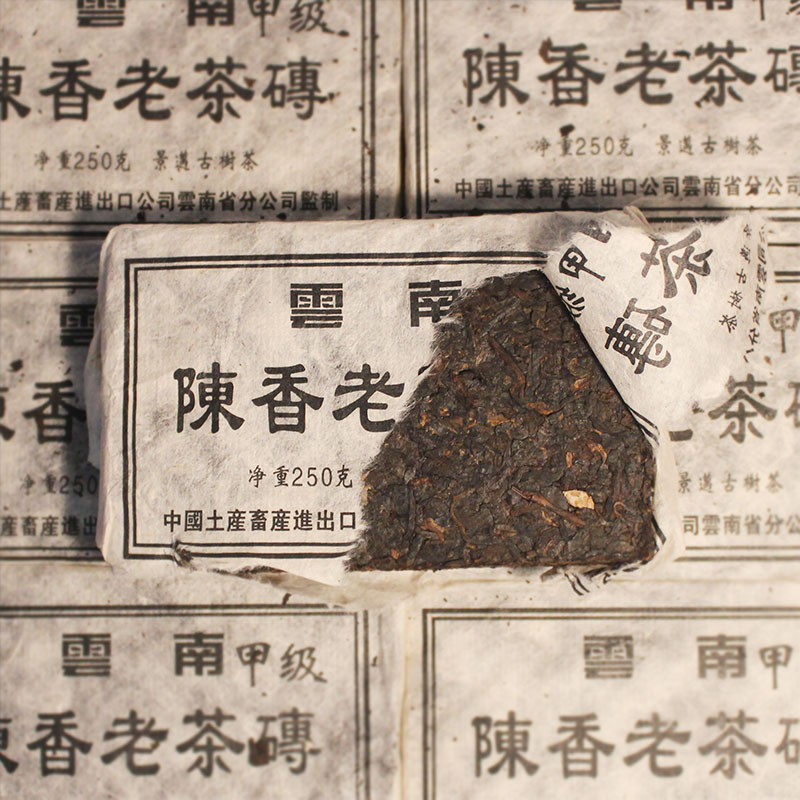 雲 南甲级
陳香老茶磚
净重250克 景邁古樹茶
土産畜産進出口公司雲南省分公司監制
雲 南甲
陳香老茶磚
净重250克 景邁古樹茶
中國土産畜産進出口公司雲南省分公
雲 南
陳香老
净重250克
中國土産畜産進出口
甲
茶
磚
雲
香
净重250
産畜産進
甲
茶
景邁古樹茶
司雲南省分公
雲 南甲级
陳香老茶磚
雲 南甲
陳香老茶磚